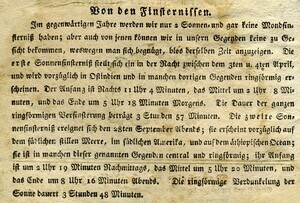 Von den Finsternissen.
Im gegenwärtigen Jahre werden wir nur 2 Sonnen-und gar keine Mondfin-
sterniß haben; aber auch von jenen können wir in unsern Gegenden keine zu Ge-
sicht bekommen, weswegen man sich begnügt, blos derselben Zeit anzuzeigen. Die
erste Sonnenfinsterniß stellt sich ein in der Nacht zwischen dem 3ten u. 4ten April,
und wird vorzüglich in Ostindien und in manchen dorigen Gegenden ringförmig er-
scheinen. Der Anfang ist Nachts 11 Uhr 4 Minuten, das Mittel um 2 Uhr 8 Mi-
nuten, und das Ende um 5 Uhr 18 Minuten Morgens. Die Dauer der ganzen
ringförmigen Verfinsterung beträgt 3 Stun den 57 Minuten. Die zweite So-
nnenfinsterniß ereignet sich den 28ten September Abends; sie erscheint vorzüglich auf
dem südlichen stillen Meere, im südlichen Amerika, und auf dem äthiopischen Ocean;
sie ist in manchen dieser genannten Gegenden central und ringförmig; ihr Anfang
ist um 2 Uhr 19 Minuten Nachmittags, das Mittel um 5 Uhr 20 Minuten, und
das Ende um 8 Uhr 16 Minuten Abends. Die ringförmige Verdunkelung der
Sonne dauert 3 Stunden 48 Minuten.